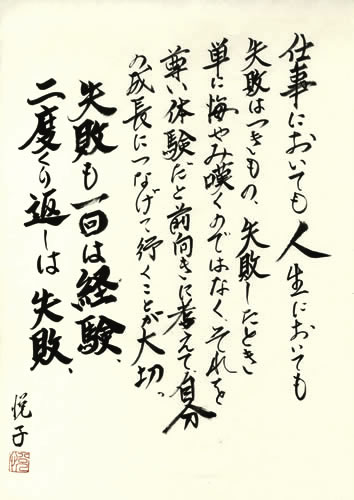 仕事においても人生においても
失敗はつきもの、失敗したとき
単に悔やみ嘆くのではなく、それを
尊い体験だと前向きに考えて、自分
の成長につなげて行くことが大切。
失敗も一回は経験、
二度くり返しは失敗、
悦子